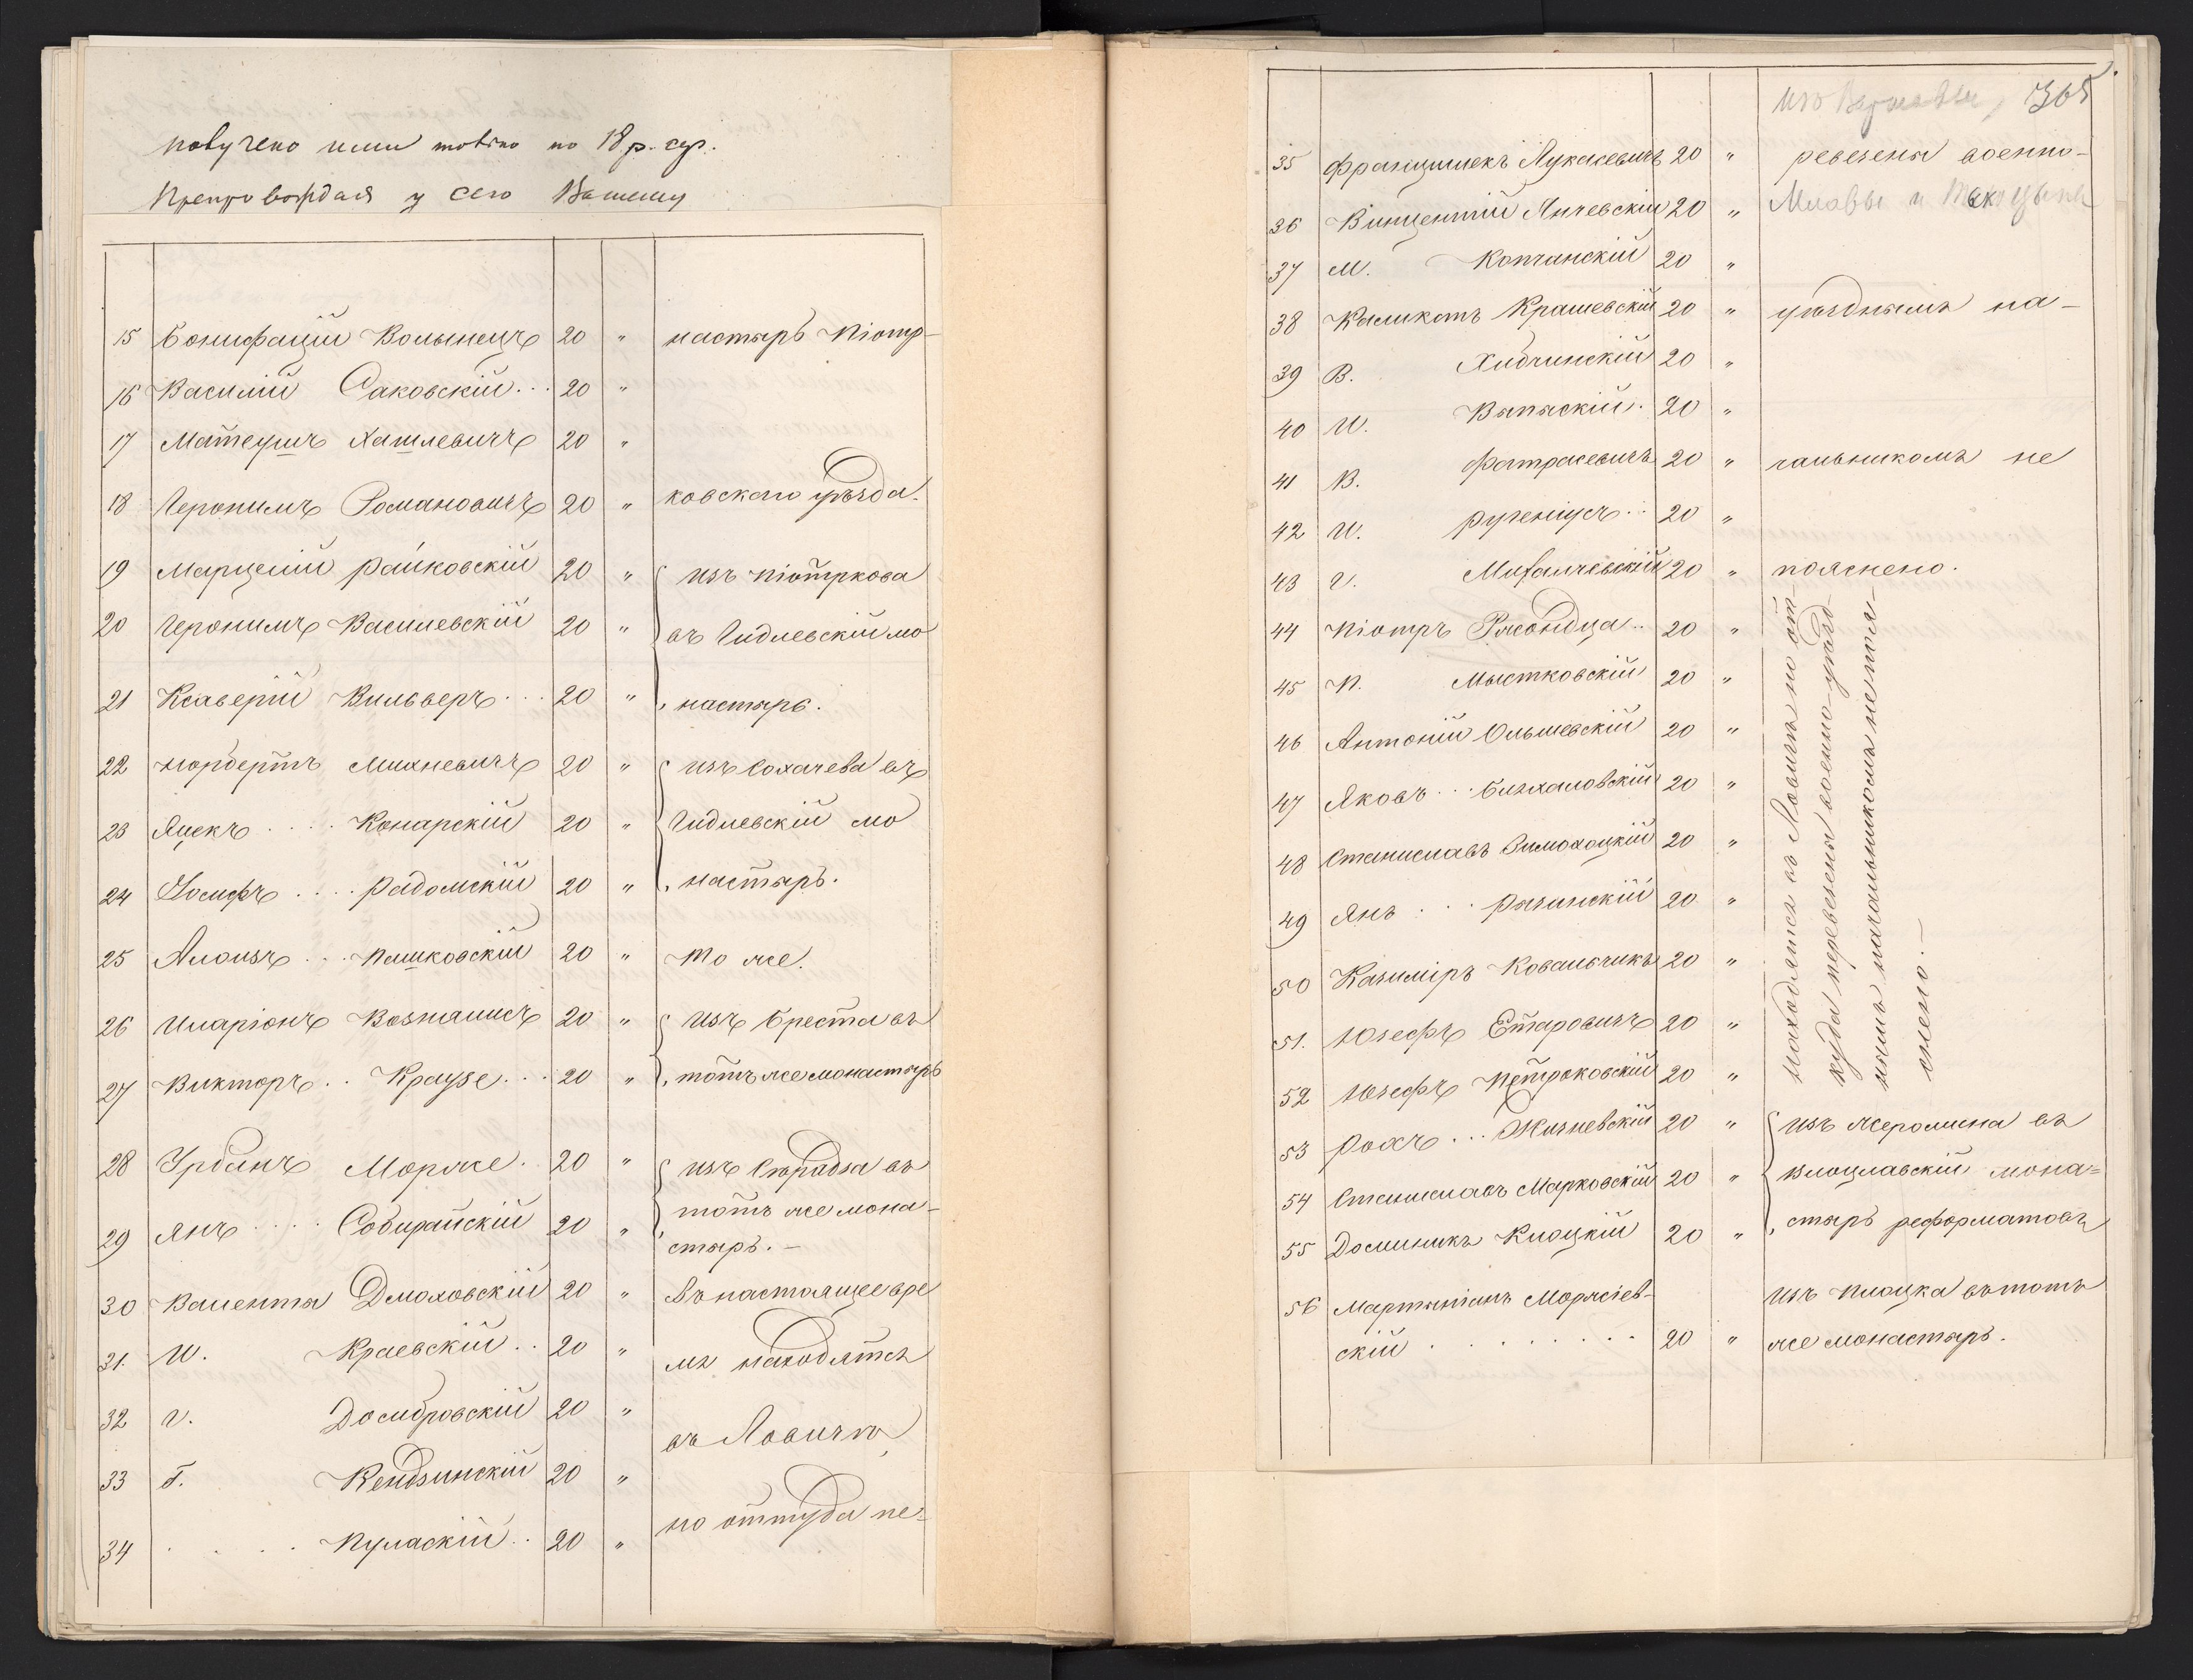 получено ими только по 18 р. сер.
Препровождая у сего Вашему
15 Бонифацій Волынецъ 20 " настырь Піотр-
16 Василій Саковскій... 20 "
17 Матеушъ Хашлевичъ 20 "
18 Іеронимъ Романовичъ 20 " ковскаго уѣзда.
19 Марцелій Райковскій 20 " изъ Піотркова
20 Іеронимъ Василевскій 20 " въ Гидлевскій мо
21 Ксаверій Вильверъ... 20 " настырь.
22 Норбертъ Михневичъ 20 " изъ Сохачева въ
23 Яцекъ .... Конарскій 20 " Гидлевскій мо
24 Іосифъ .... Радомскій 20 " настырь.
25 Алоизъ ... Пашковскій 20 " то же.
26 Иларіонъ Возналисъ 20 " изъ Бреста въ
27 Викторъ .. Краузе... 20 " тотъ же монастырь
28 Урбанъ Морже. 20 " изъ Сѣрадза въ
29 Янъ .... Собирайскій 20 " тотъ же мона-
стырь. -
30 Валентъ Дмоховскій 20 " въ настоящее вре
31. И. Краевскій.. 20 " мя находятся
32 Г. Домбровскій 20 "
въ Ловичѣ,
33 Б. Кендзинскій 20 "
но оттуда пе-
34 .... Пуласкій.. 20 "
365
35 Францишекъ Лукасевичъ 20 " ревезены военно-
36 Винцентій Янчевскій 20 " Млавы и
37 М. Копчанскій 20 "
38 Каликстъ Крашевскій 20 " уѣзднымъ на-
39 В. Хибчинскій 20 "
40 И. Выпыскій. 20 "
41 В. Фатрасевичъ 20 " чальникомъ не
42 И. Ругеніусъ.. 20 "
43 Г. Михалчевскій 20 " пояснено.
44 Піотръ Ржондца.. 20 "
45 П. Мыстковскій 20 "
46 Антоній Ольшевскій 20 "
47 Яковъ... Блэхаловскій 20 "
48 Станиславъ Зимохоцкій 20 "
49 Янъ ... Рачинскій 20 "
50 Казиміръ Ковальчикъ 20 "
51. Юзефъ Етаровичъ 20 "
52 Юзефъ Петроковскій 20 "
находятся въ Ловичѣ но от-
куда перевезены военно-уѣзд-
нымъ начальникомъ не поя-
снено. -
53 Рохъ... Жизневскій 20 " изъ Жеромина въ
54 Станиславъ Марковскій 20 " Влоцлавскій мона=
55 Доминикъ Клоцкій 20 " стырь реформатовъ
56 Мартыніанъ Моржіев- изъ Плоцка въ тотъ
скій ........ 20 " же монастырь.